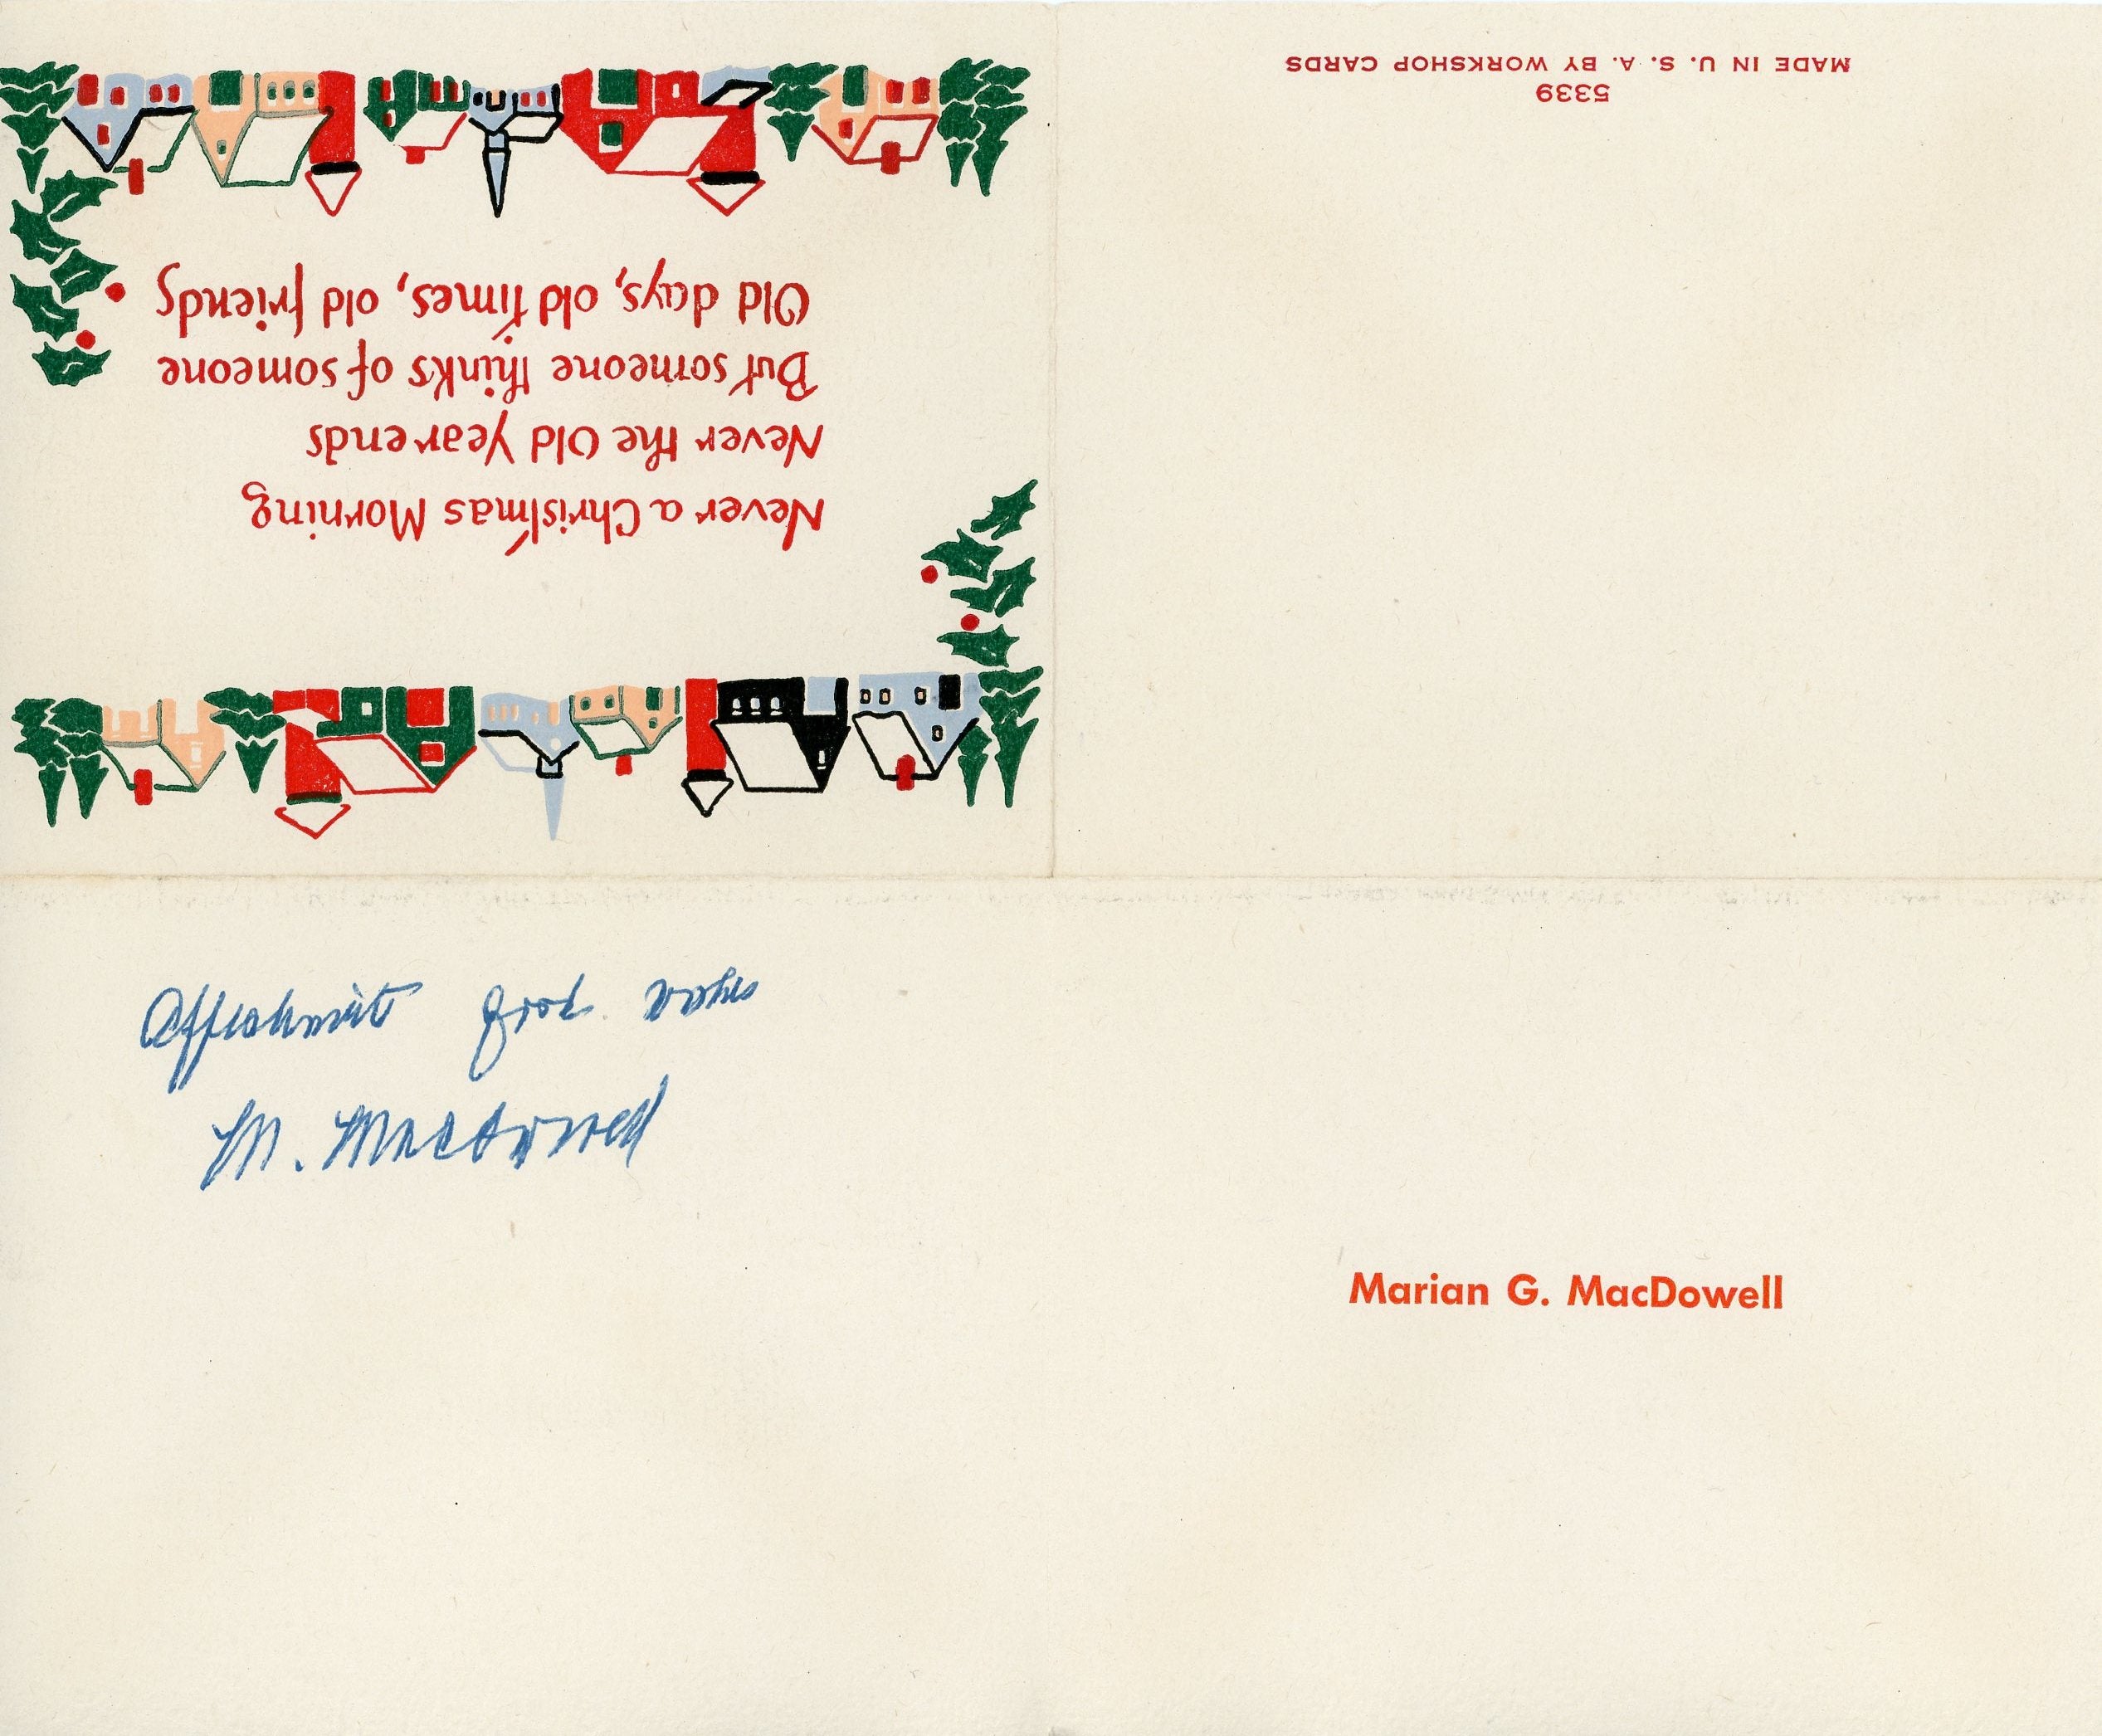 Never a Christmas Morning
Never the Old Year ends
But someone thinks of someone
Old days, old times, old friends
5339
MADE IN U. S. A. BY WORKSHOP CARDS
good
M. MacDowell
Marian G. MacDowell